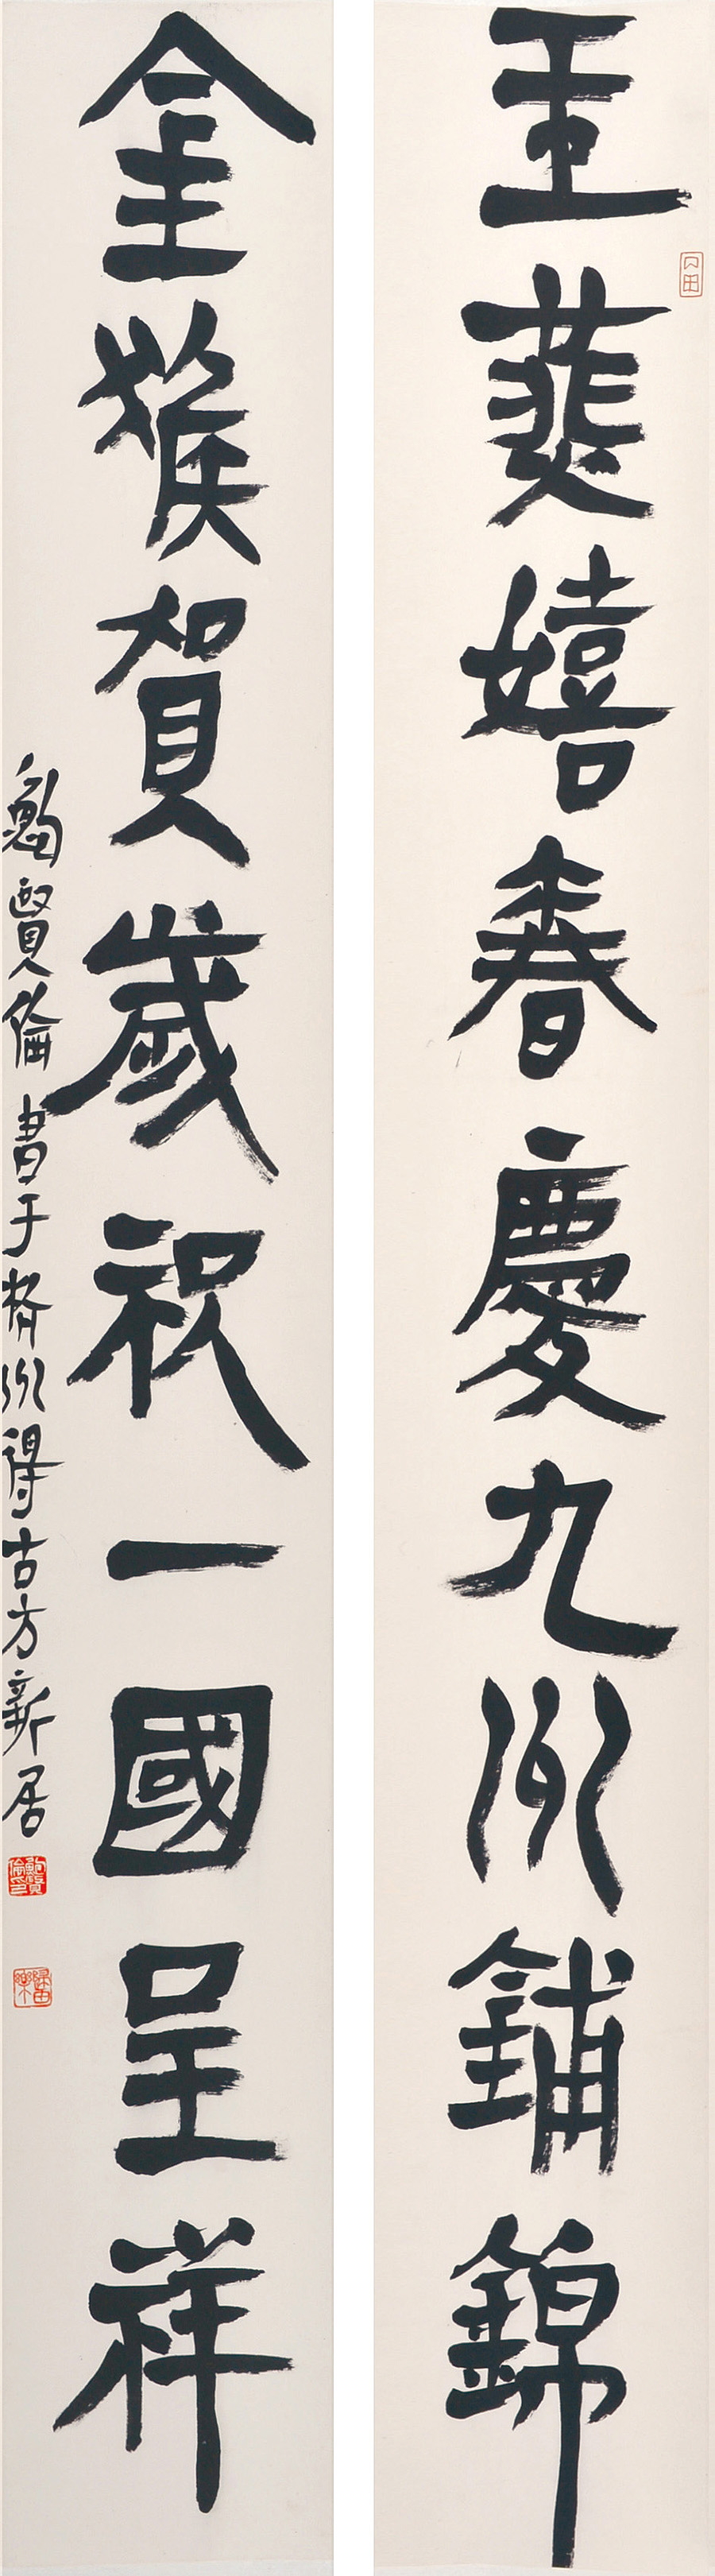 玉燕嬉春慶九州鋪錦
金猴賀歲祝一國呈祥
鮑賢倫書于杭州得古方新居
鮑賢倫印